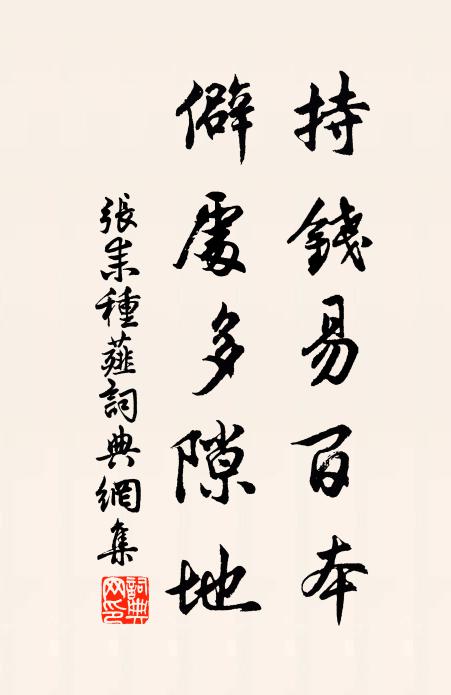 持錢易百本
僻處多隙地
張耒種薤詞典網集
詞典网印